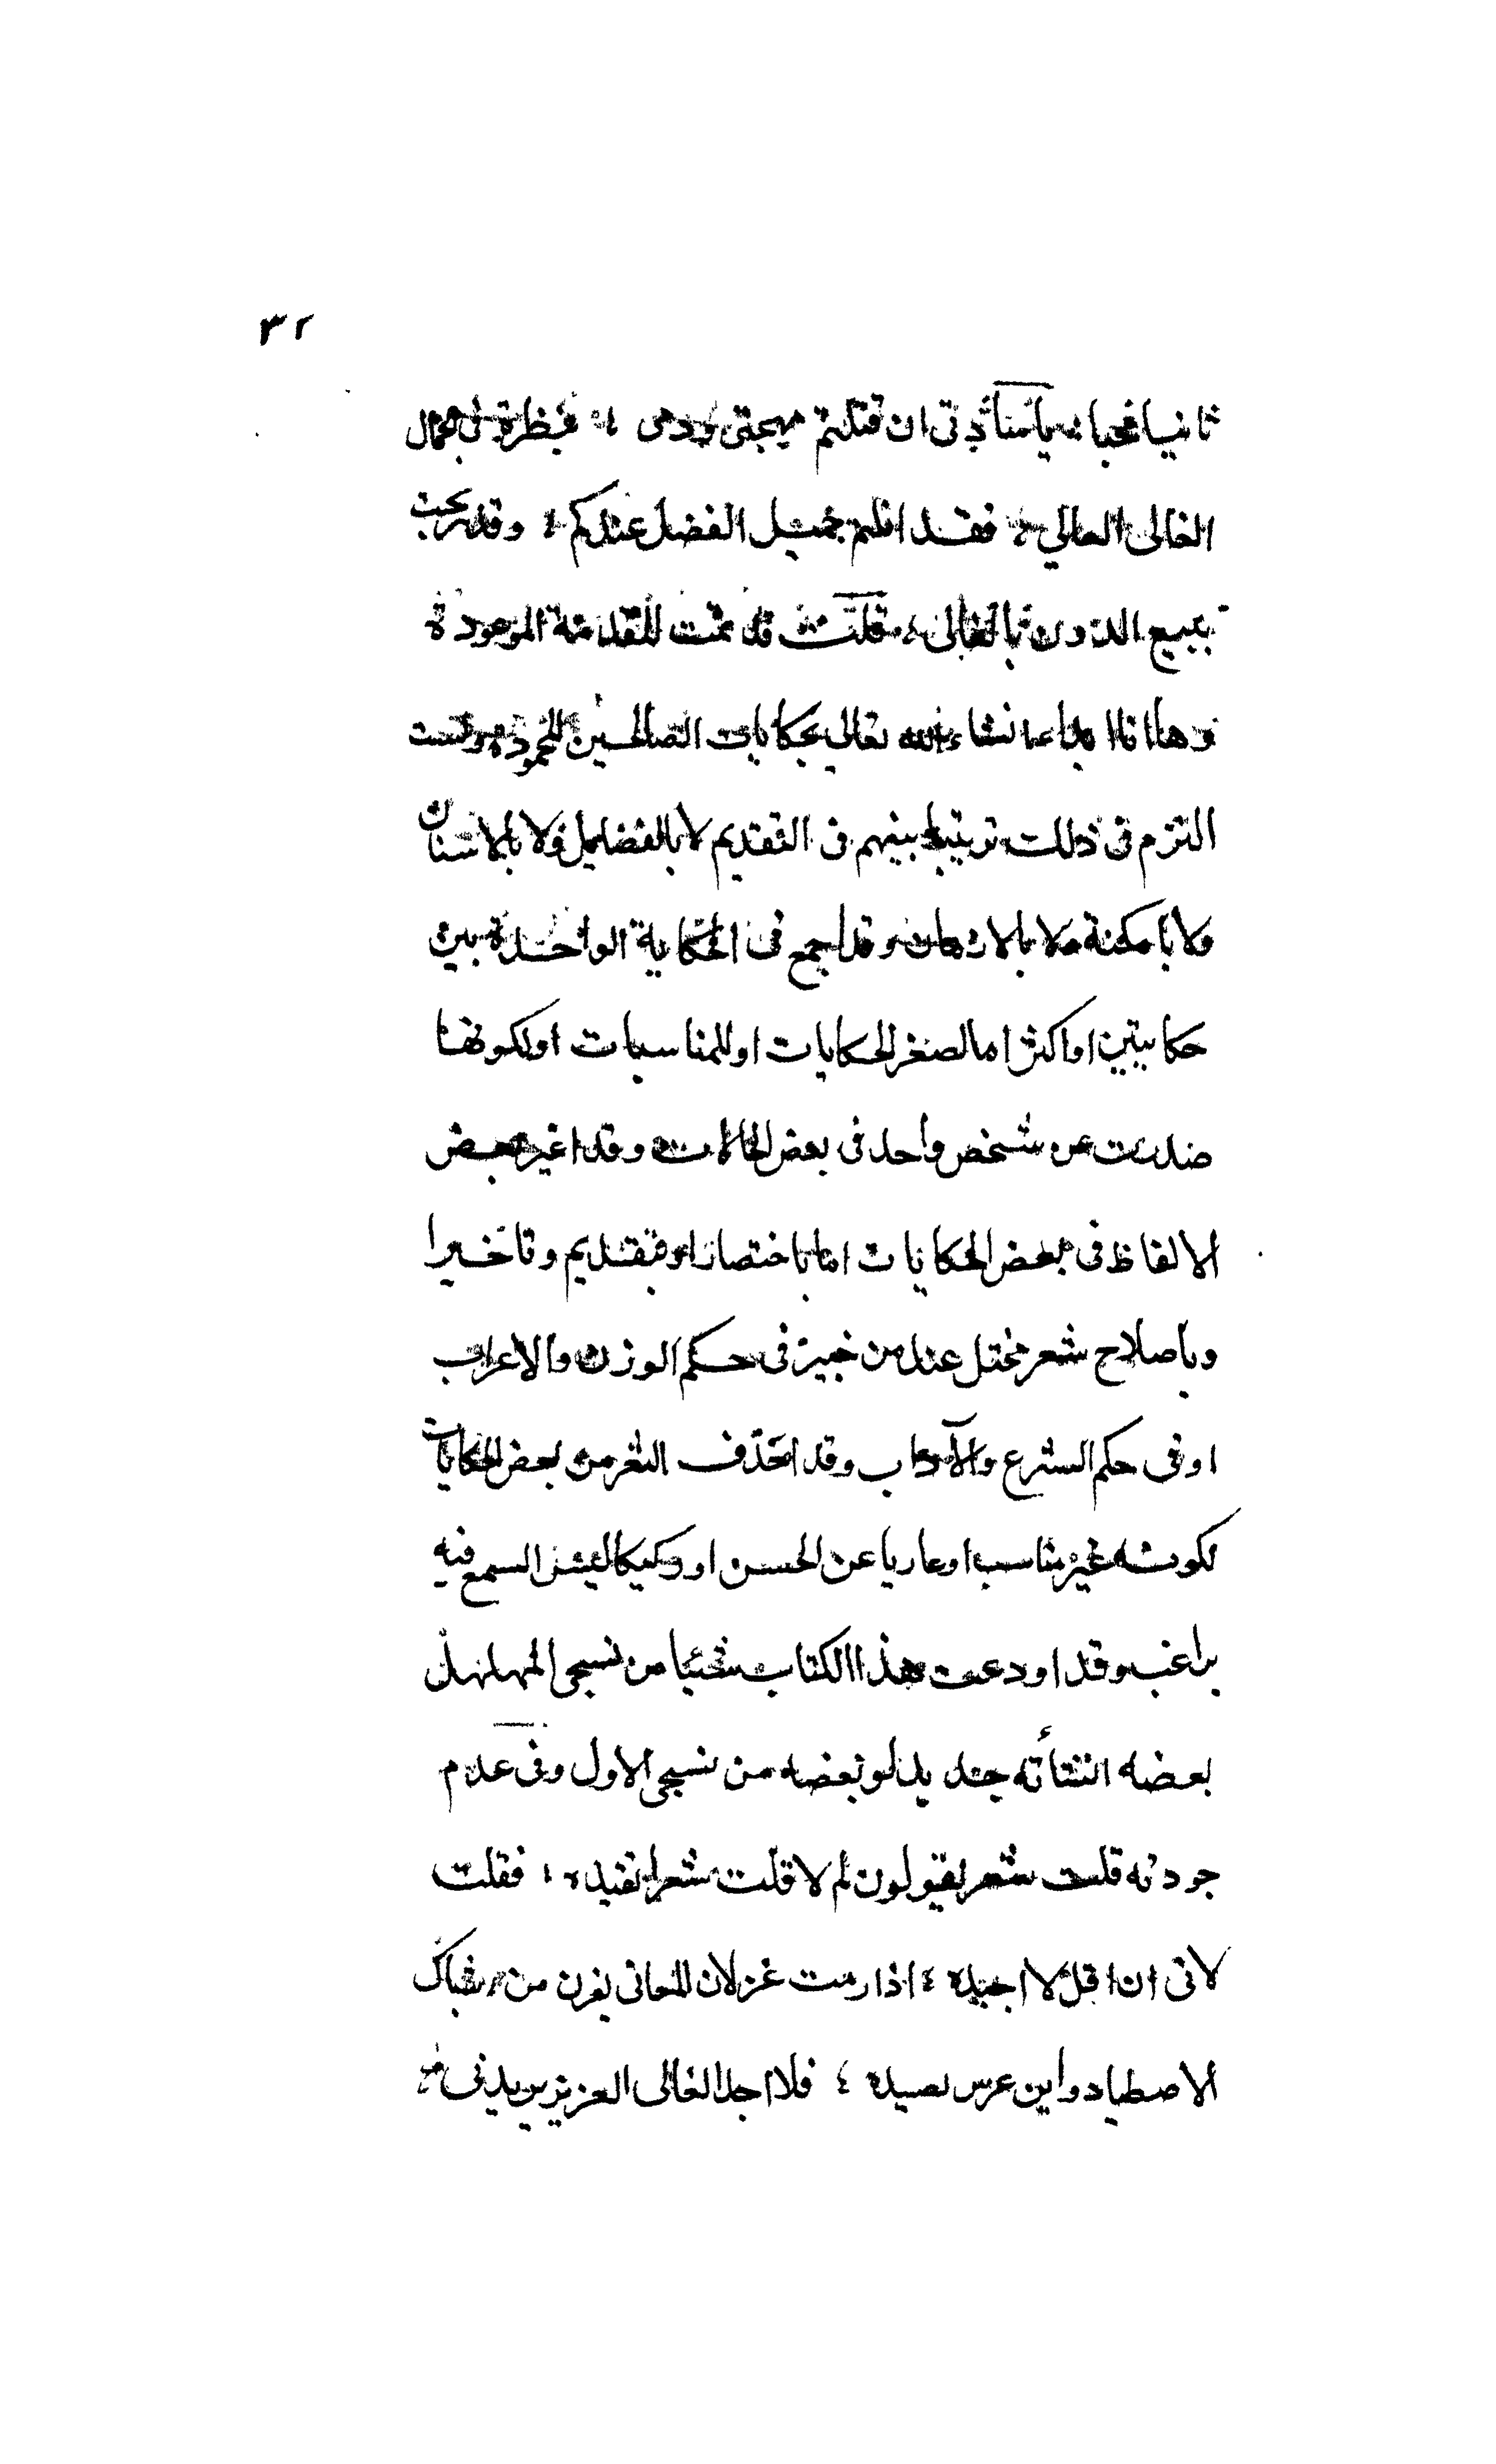 ٣٢
ثانيا مجيبا يا سادتى ان قتلتم مهجتى ودمى بنظرة فى جمال
الغالى العالي فقد انلتم جميل الفضل عندكم وقد ربحت
ببيع الدون بالغالى قلت قد تمت المقدمة الموجودة
وها انا ابدا ان شاء الله تعالى بحكايات الصالحين المحمودة ولست
التزم فى ذلك ترتيبا بينهم فى التقديم لا بالفضايل ولا بالاسنان
ولا بامكنة ولا بالازمان وقد اجمع فى الحكاية الواحدة بين
حكايتين او اكثر اما لصغر الحكايات او للمناسبات او لكونها
صدرت عن شخص واحد فى بعض الحالات وقد اغير بعض
الالفاظ فى بعض الحكايات اما باختصار او بتقديم وتاخير ا
وباصلاح شعر مختل عند من خبير فى حكم الوزن والاعراب
او فى حكم الشرع والآداب وقد احذف الشعر من بعض الحكايات
لكونه غير مناسب او عاريا عن الحسن او ركيكا ليس السمع فيه
براغب وقد اودعت هذا الكتاب شيئا من نسجى المهلهل
بعضه انشأته جديدا وبعضه من نسجى الاول وفى عدم
جودته قلت شعر يقولون لم لا قلت شعرا تفيده فقلت
لانى ان اقل لا اجيده اذا رمت غزلان المعانى يفرن من شباك
الاصطياد وابن عرس نصيده فلا اجد الغالى العزيز يريدنى